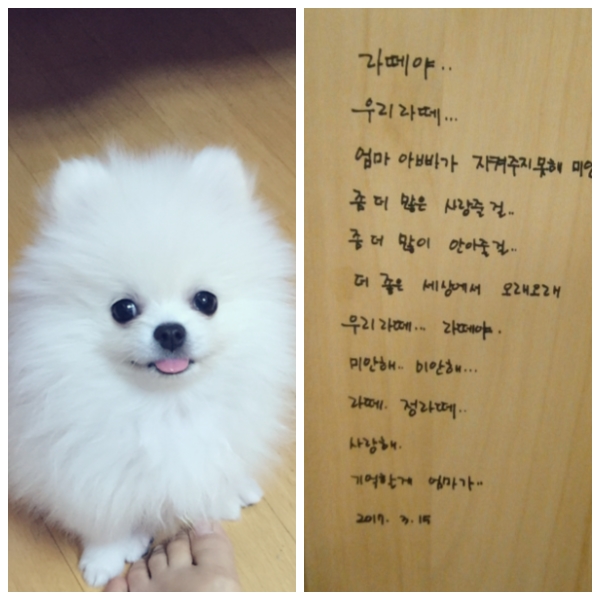 라떼야..
우리 라떼...
엄마 아빠가 지켜주지 못해 미안
좀 더 많은 사랑줄걸..
좀 더 많이 안아줄걸..
더 좋은 세상에서 오래오래
우리 라떼... 라떼야.
미안해.. 미안해...
라떼. 정라떼..
사랑해.
기억할게 엄마가..
2017. 3. 15